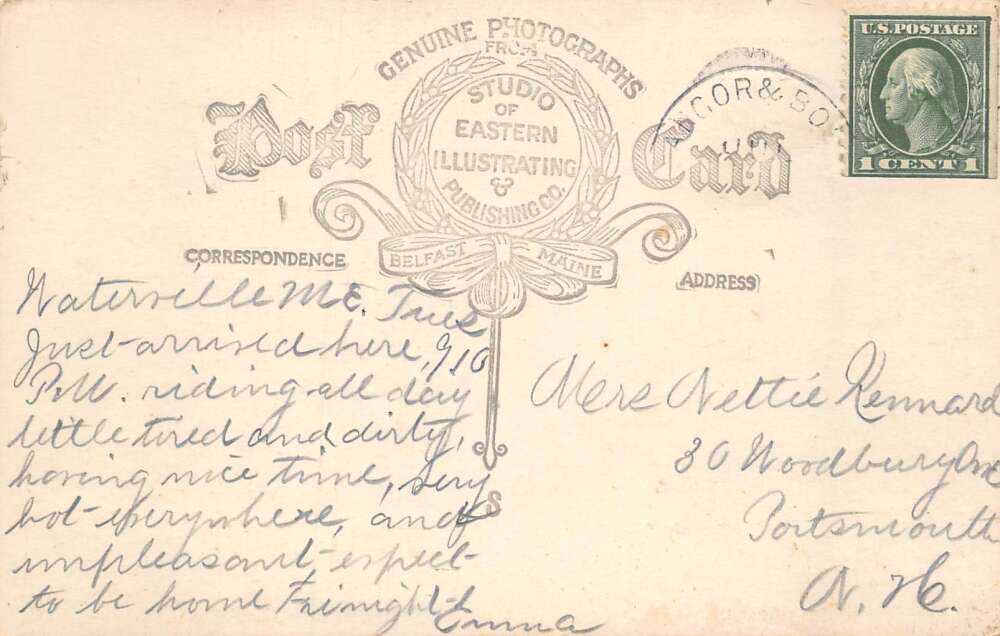 GENUINE PHOTOGRAPHS
FROM
STUDIO
OF
EASTERN
ILLUSTRATING
&
PUBLISHING CO.
BELFAST MAINE
Post Card
CORRESPONDENCE
ADDRESS
S
U.S. POSTAGE
1 CENT 1
GOR & BO
Waterville Me. Tues
Just arrived here, 910
P.M. riding all day
little tired and dirty,
having nice time, very
hot everywhere, and
unpleasant expect
to be home Fri night
Emma
Mrs Nettie Rennard
30 Woodbury Ave
Portsmouth
N. H.